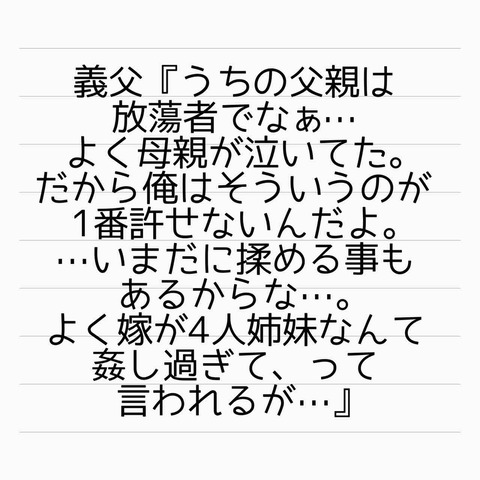 義父『うちの父親は
放蕩者でなぁ…
よく母親が泣いてた。
だから俺はそういうのが
1番許せないんだよ。
…いまだに揉める事も
あるからな…。
よく嫁が4人姉妹なんて
姦し過ぎて、って
言われるが…』